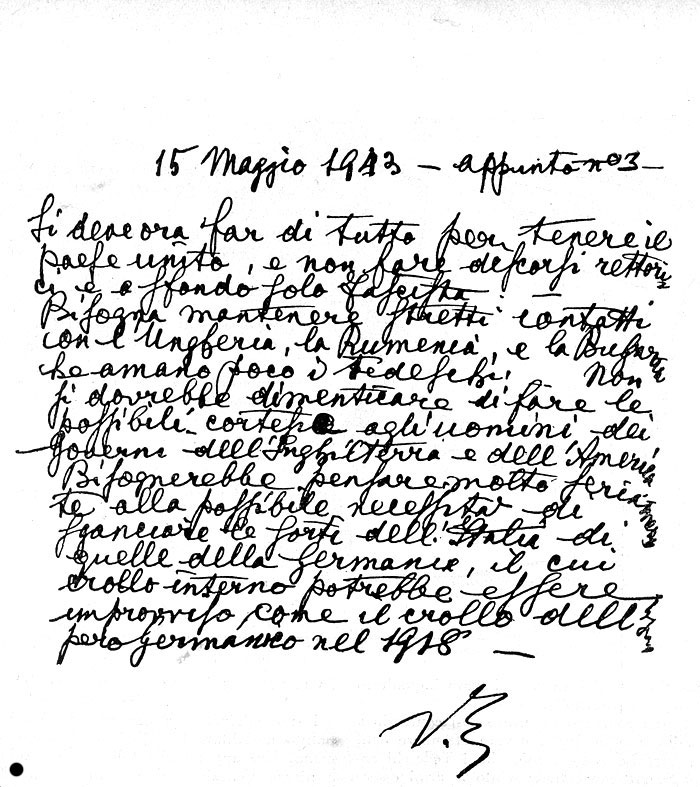 15 Maggio 1943 – appunto nº 3 –
Si deve ora far di tutto per tenere il
paese unito, e non fare discorsi rettori
ci e a sfondo solo fascista
Bisogna mantenere stretti contatti
con l'Ungheria, la Rumenia, e la Bulgaria
che amano poco i tedeschi. Non
si dovrebbe dimenticare di fare le
possibili cortesie agli uomini dei
Governi dell'Inghilterra e dell'America
Bisognerebbe pensare molto seria-
te alla possibile necessità di
sganciare le sorti dell'Italia di
quelle della Germania, il cui
crollo interno potrebbe essere
improvviso come il crollo dell'
pero germanico nel 1918 –
V. E